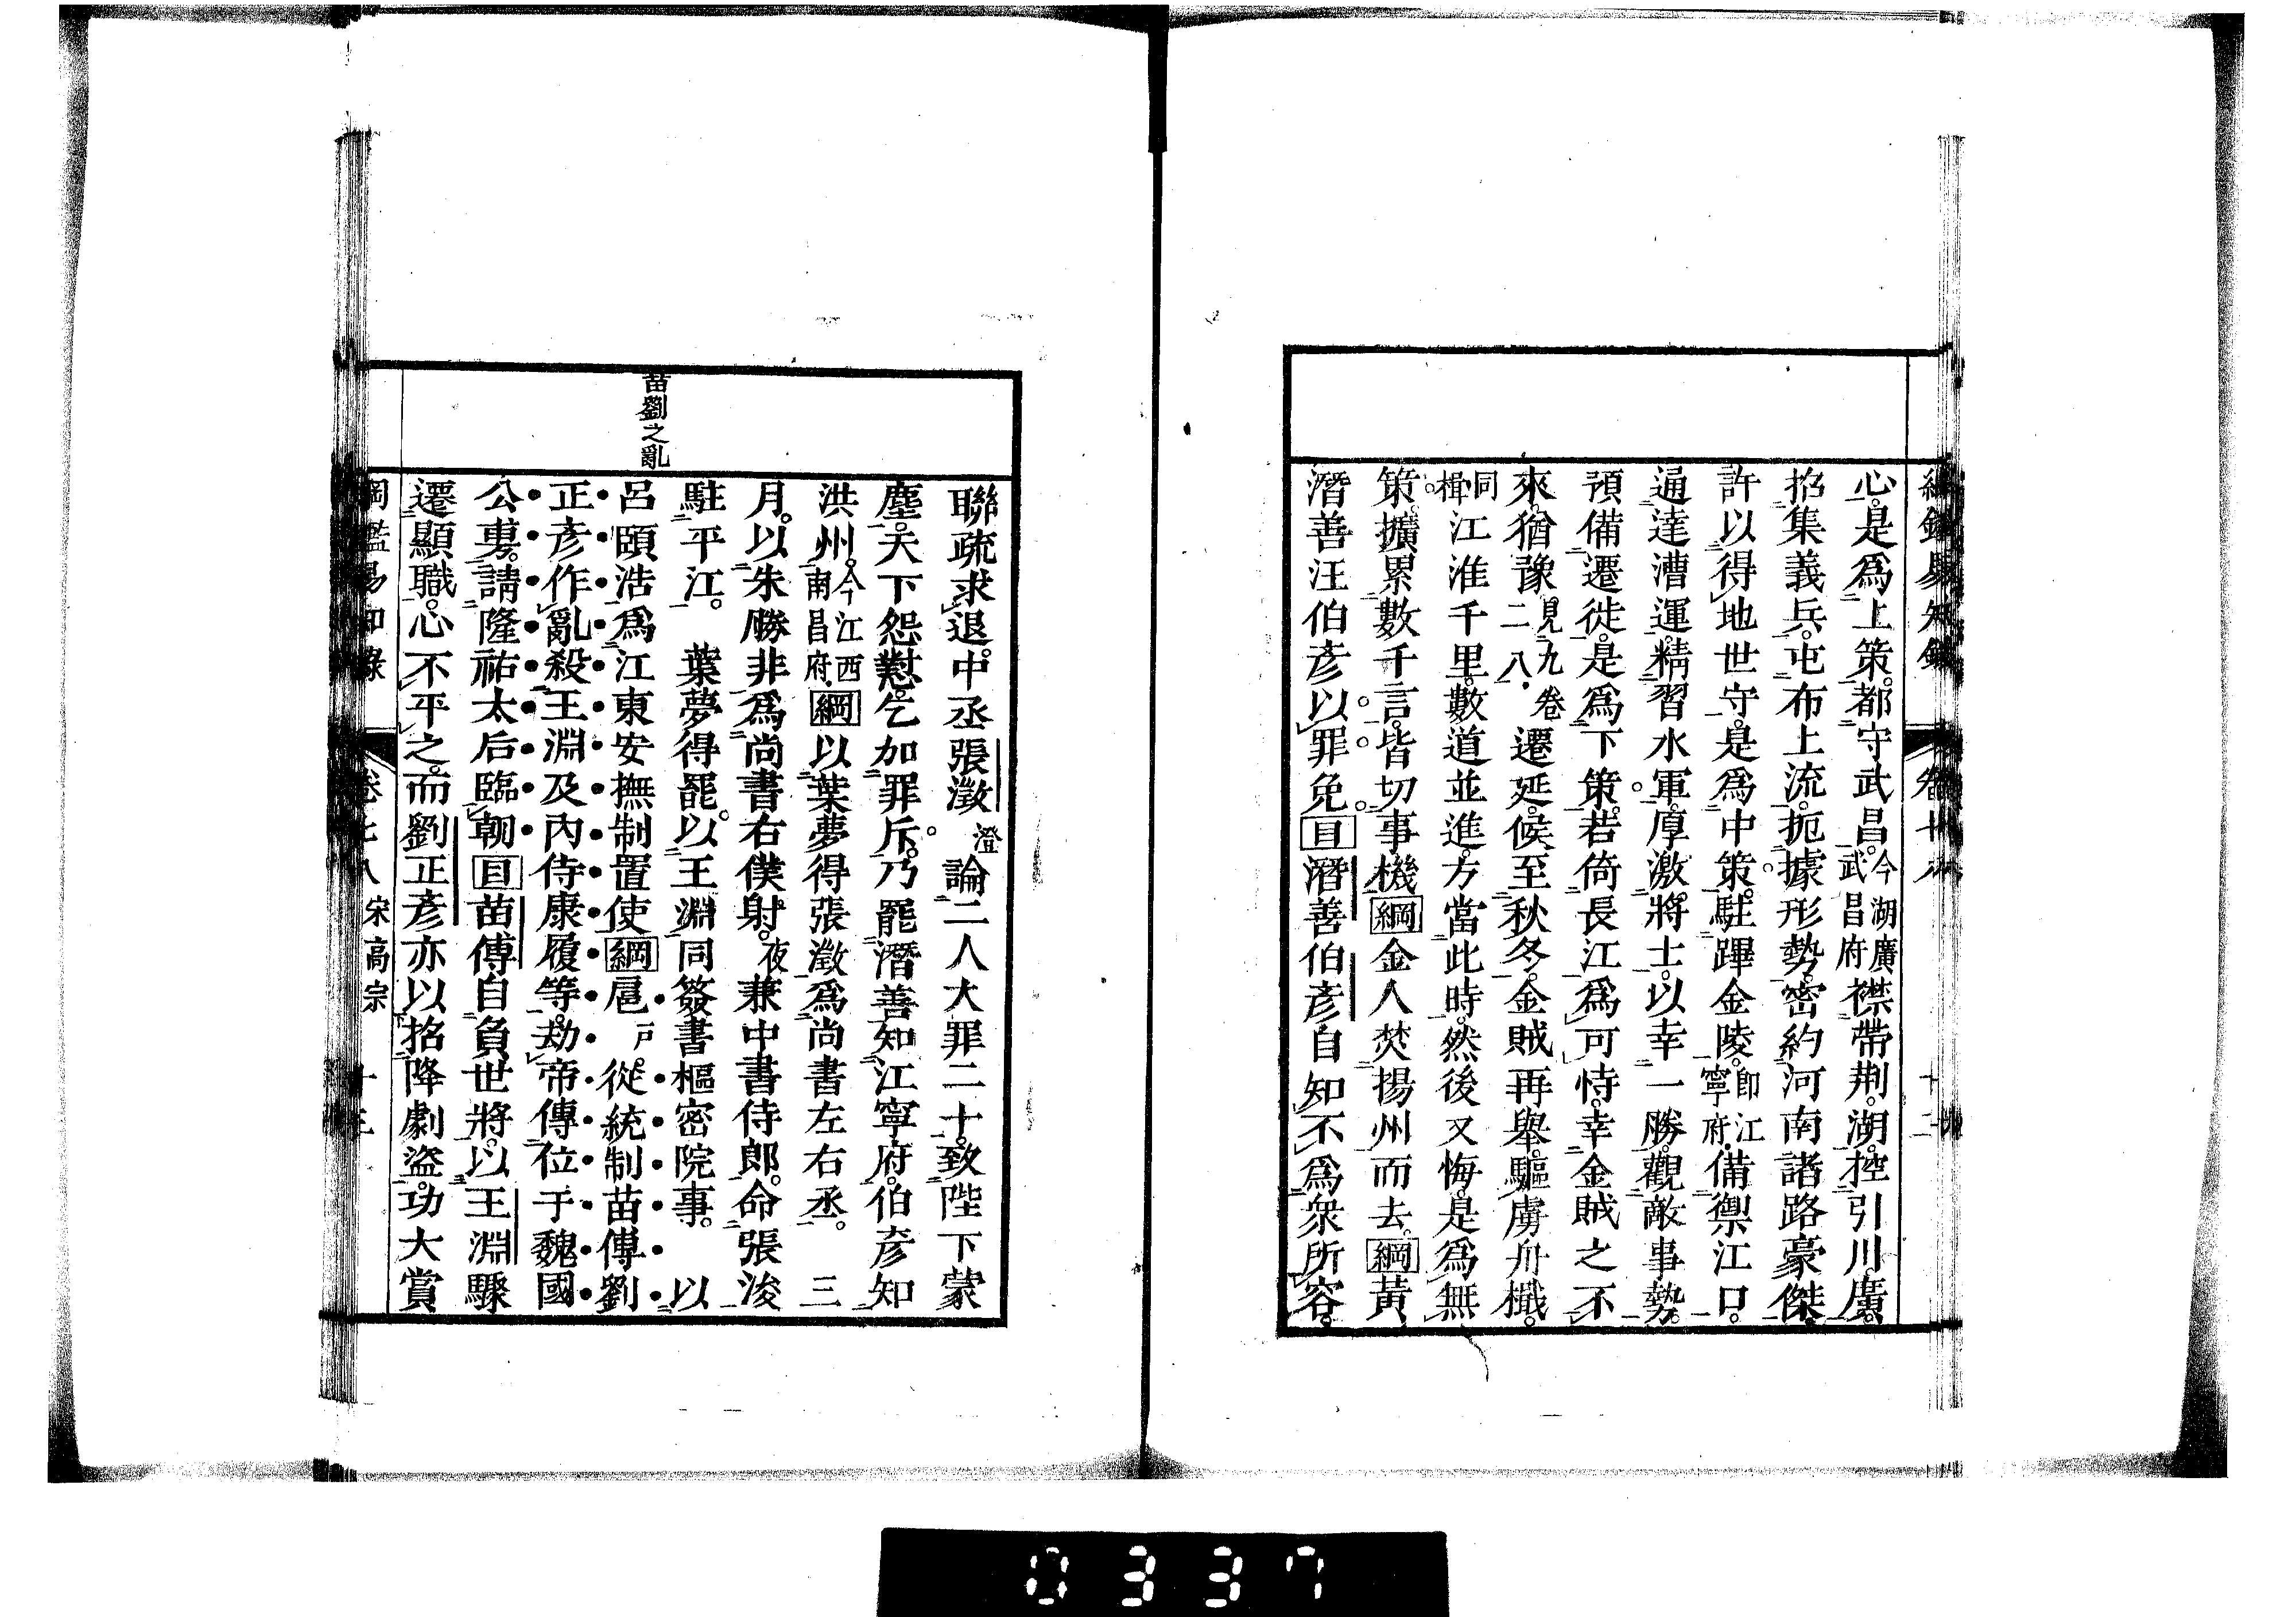 心。是爲上策。都守武昌。今湖廣武昌府襟帶荆。湖。控引川。廣。
招集義兵。屯布上流。扼據形勢。密約河南諸路豪傑。
許以得地世守。是爲中策。駐蹕金陵。即江寧府.備禦江口。
通達漕運。精習水軍。厚激將士。以幸一勝。觀敵事勢。
預備遷徙。是爲下策。若倚長江爲可恃。幸金賊之不
來。猶豫見九卷二八.遷延。候至秋冬。金賊再舉。驅虜舟檝。
同楫。江淮千里。數道並進。方當此時。然後又悔。是爲無
策。擴累數千言。皆切事機綱金人焚揚州而去。綱黃
潛善汪伯彥以罪免。目潛善伯彥自知不爲衆所容。
聯疏求退。中丞張澂澄論二人大罪二十。致陛下蒙
塵。天下怨懟。乞加罪斥。乃罷潛善知江寧府。伯彥知
洪州。今江西南昌府.綱以葉夢得張澂爲尚書左右丞。三
月。以朱勝非爲尚書右僕射。夜兼中書侍郎。命張浚
駐平江。葉夢得罷。以王淵同簽書樞密院事。以
呂頤浩爲江東安撫制置使綱扈戶。從統制苗傅劉
正彥作亂。殺王淵及內侍康履等。劫帝傳位于魏國
公旉。請隆祐太后臨朝目苗傅自負世將。以王淵驟
遷顯職。心不平之。而劉正彥亦以招降劇盜。功大賞
苗劉之亂
綱鑑易知錄 卷七八 宋高宗 十三